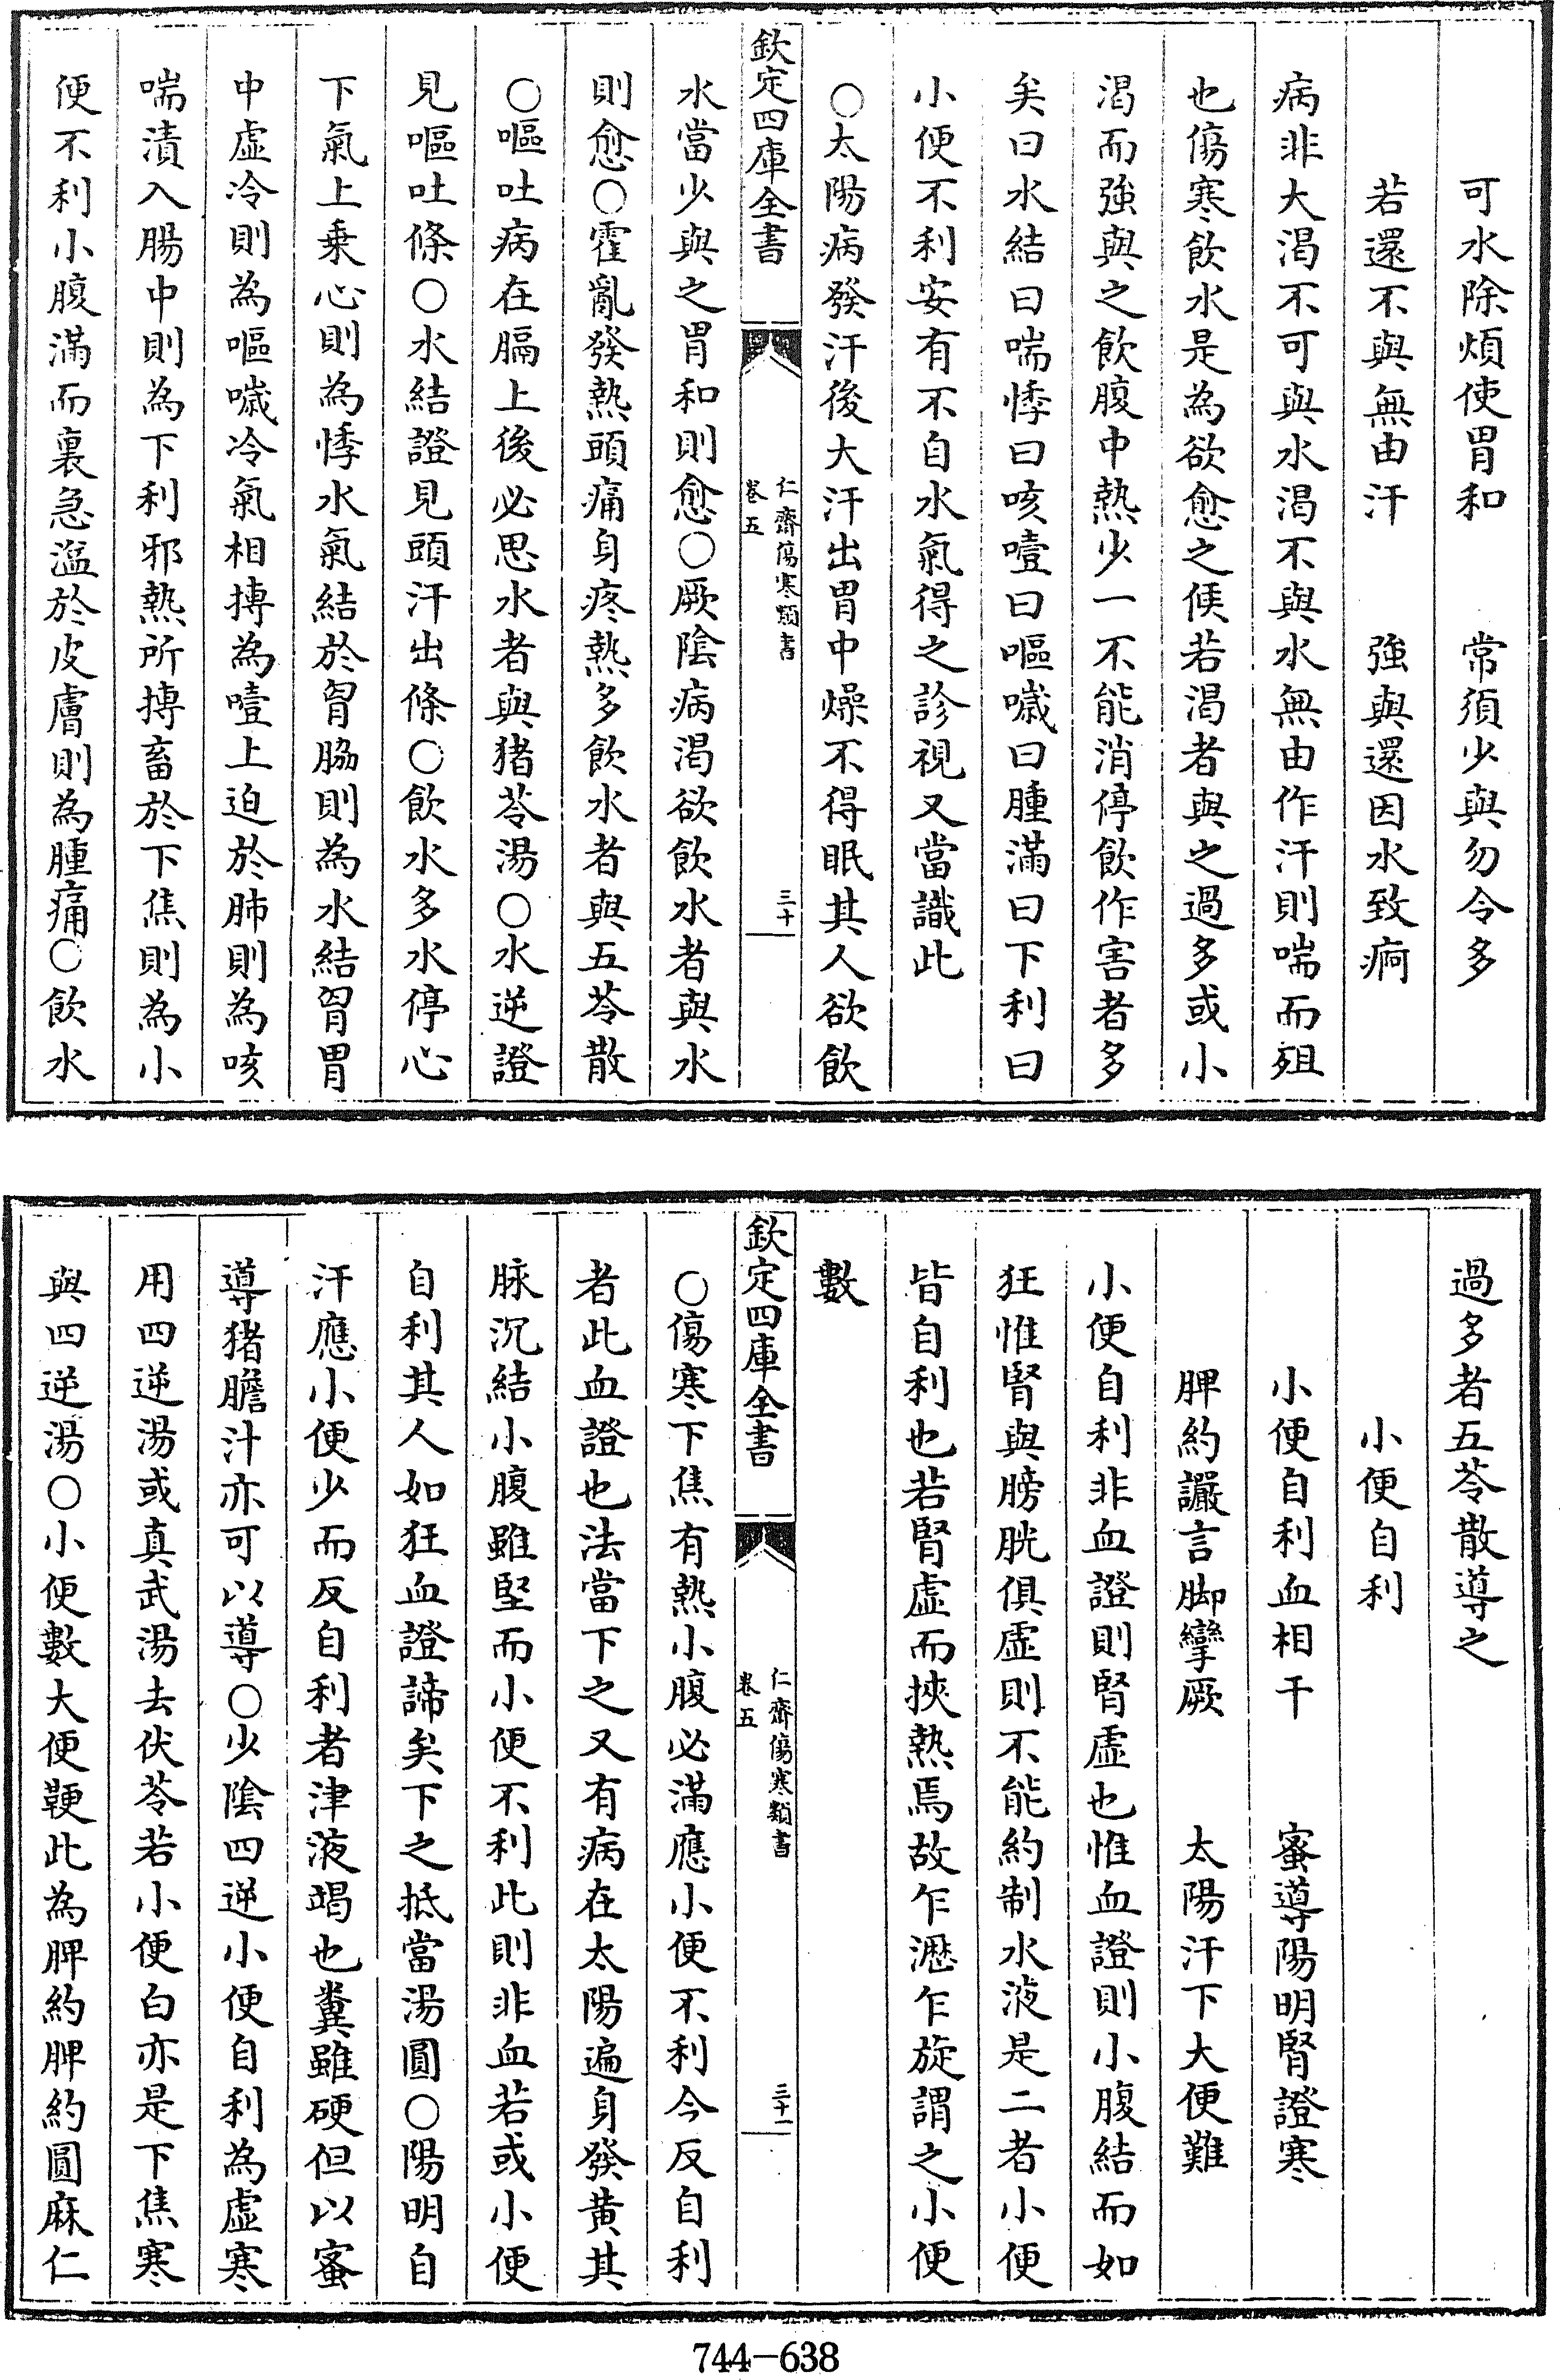 可水除煩使胃和　常須少與勿令多
若還不與無由汗　強與還因水致痾
病非大渴不可與水渴不與水無由作汗則喘而殂
也傷寒飲水是為欲愈之候若渴者與之過多或小
渴而強與之飲腹中熱少一不能消停飲作害者多
矣曰水結曰喘悸曰咳噎曰嘔噦曰腫滿曰下利曰
小便不利安有不自水氣得之診視又當識此
○太陽病發汗後大汗出胃中燥不得眠其人欲飲
欽定四庫全書
仁齋傷寒類書
卷五
三十
水當少少與之胃和則愈○厥陰病渴欲飲水者與水
則愈○霍亂發熱頭痛身疼熱多飲水者與五苓散
○嘔吐病在膈上後必思水者與猪苓湯○水逆證
見嘔吐條○水結證見頭汗出條○飲水多水停心
下氣上乗心則為悸水氣結於胷脇則為水結胷胃
中虛冷則為嘔噦冷氣相搏為噎上迫於肺則為咳
喘漬入腸中則為下利邪熱所搏畜於下焦則為小
便不利小腹滿而裏急溢於皮膚則為腫痛○飲水
過多者五苓散導之
小便自利
小便自利血相干　蜜導陽明腎證寒
脾約讝言脚攣厥　太陽汗下大便難
小便自利非血證則腎虛也惟血證則小腹結而如
狂惟腎與膀胱俱虛則不能約制水液是二者小便
皆自利也若腎虛而挾熱焉故乍瀝乍旋謂之小便
數
欽定四庫全書
仁齋傷寒類書
卷五
三十一
○傷寒下焦有熱小腹必滿應小便不利今反自利
者此血證也法當下之又有病在太陽遍身發黄其
脉沉結小腹雖堅而小便不利此則非血若或小便
自利其人如狂血證諦矣下之抵當湯圓○陽明自
汗應小便少而反自利者津液竭也糞雖硬但以蜜
導猪膽汁亦可以導○少陰四逆小便自利為虛寒
用四逆湯或真武湯去伏苓若小便白亦是下焦寒
與四逆湯○小便數大便鞕此為脾約脾約圓麻仁
744—638